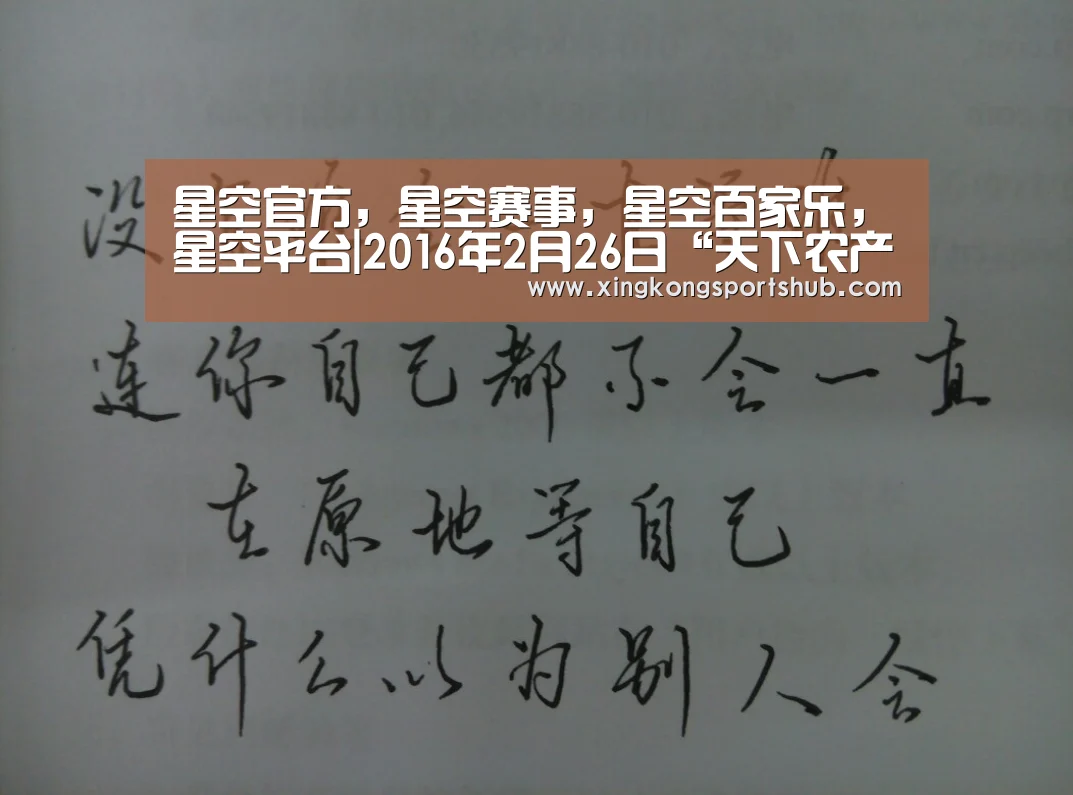 没
星空官方，星空赛事，星空百家乐，
星空平台|2016年2月26日“天下农产
www.xingkongsportshub.com
連你自己都不会一直
在原地等自己
凭什么以为别人会